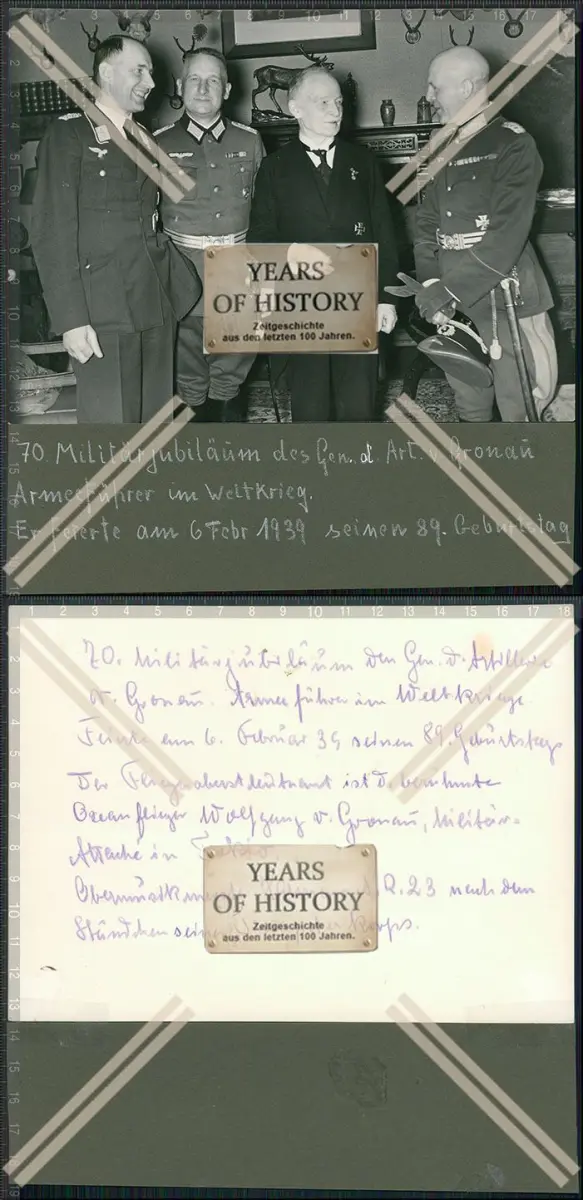 YEARS
OF HISTORY
Zeitgeschichte
aus den letzten 100 Jahren.
70. Militärjubiläum des Gen. d. Art. v. Gronau
Armeeführer im Weltkrieg.
Er feierte am 6 Febr 1939 seinen 89. Geburtstag
70. Militärjubiläum den Gen. d. Artillerie
v. Gronau. Armeeführer im Weltkriege.
Feierte am 6. Februar 39 seinen 89. Geburtstag
Der Fliegeroberstleutnant ist d. berühmte
Ozeanflieger Wolfgang v. Gronau, Militär-
Attaché in
YEARS
OF HISTORY
Zeitgeschichte
aus den letzten 100 Jahren.
23 nach dem
Ständchen seines korps.